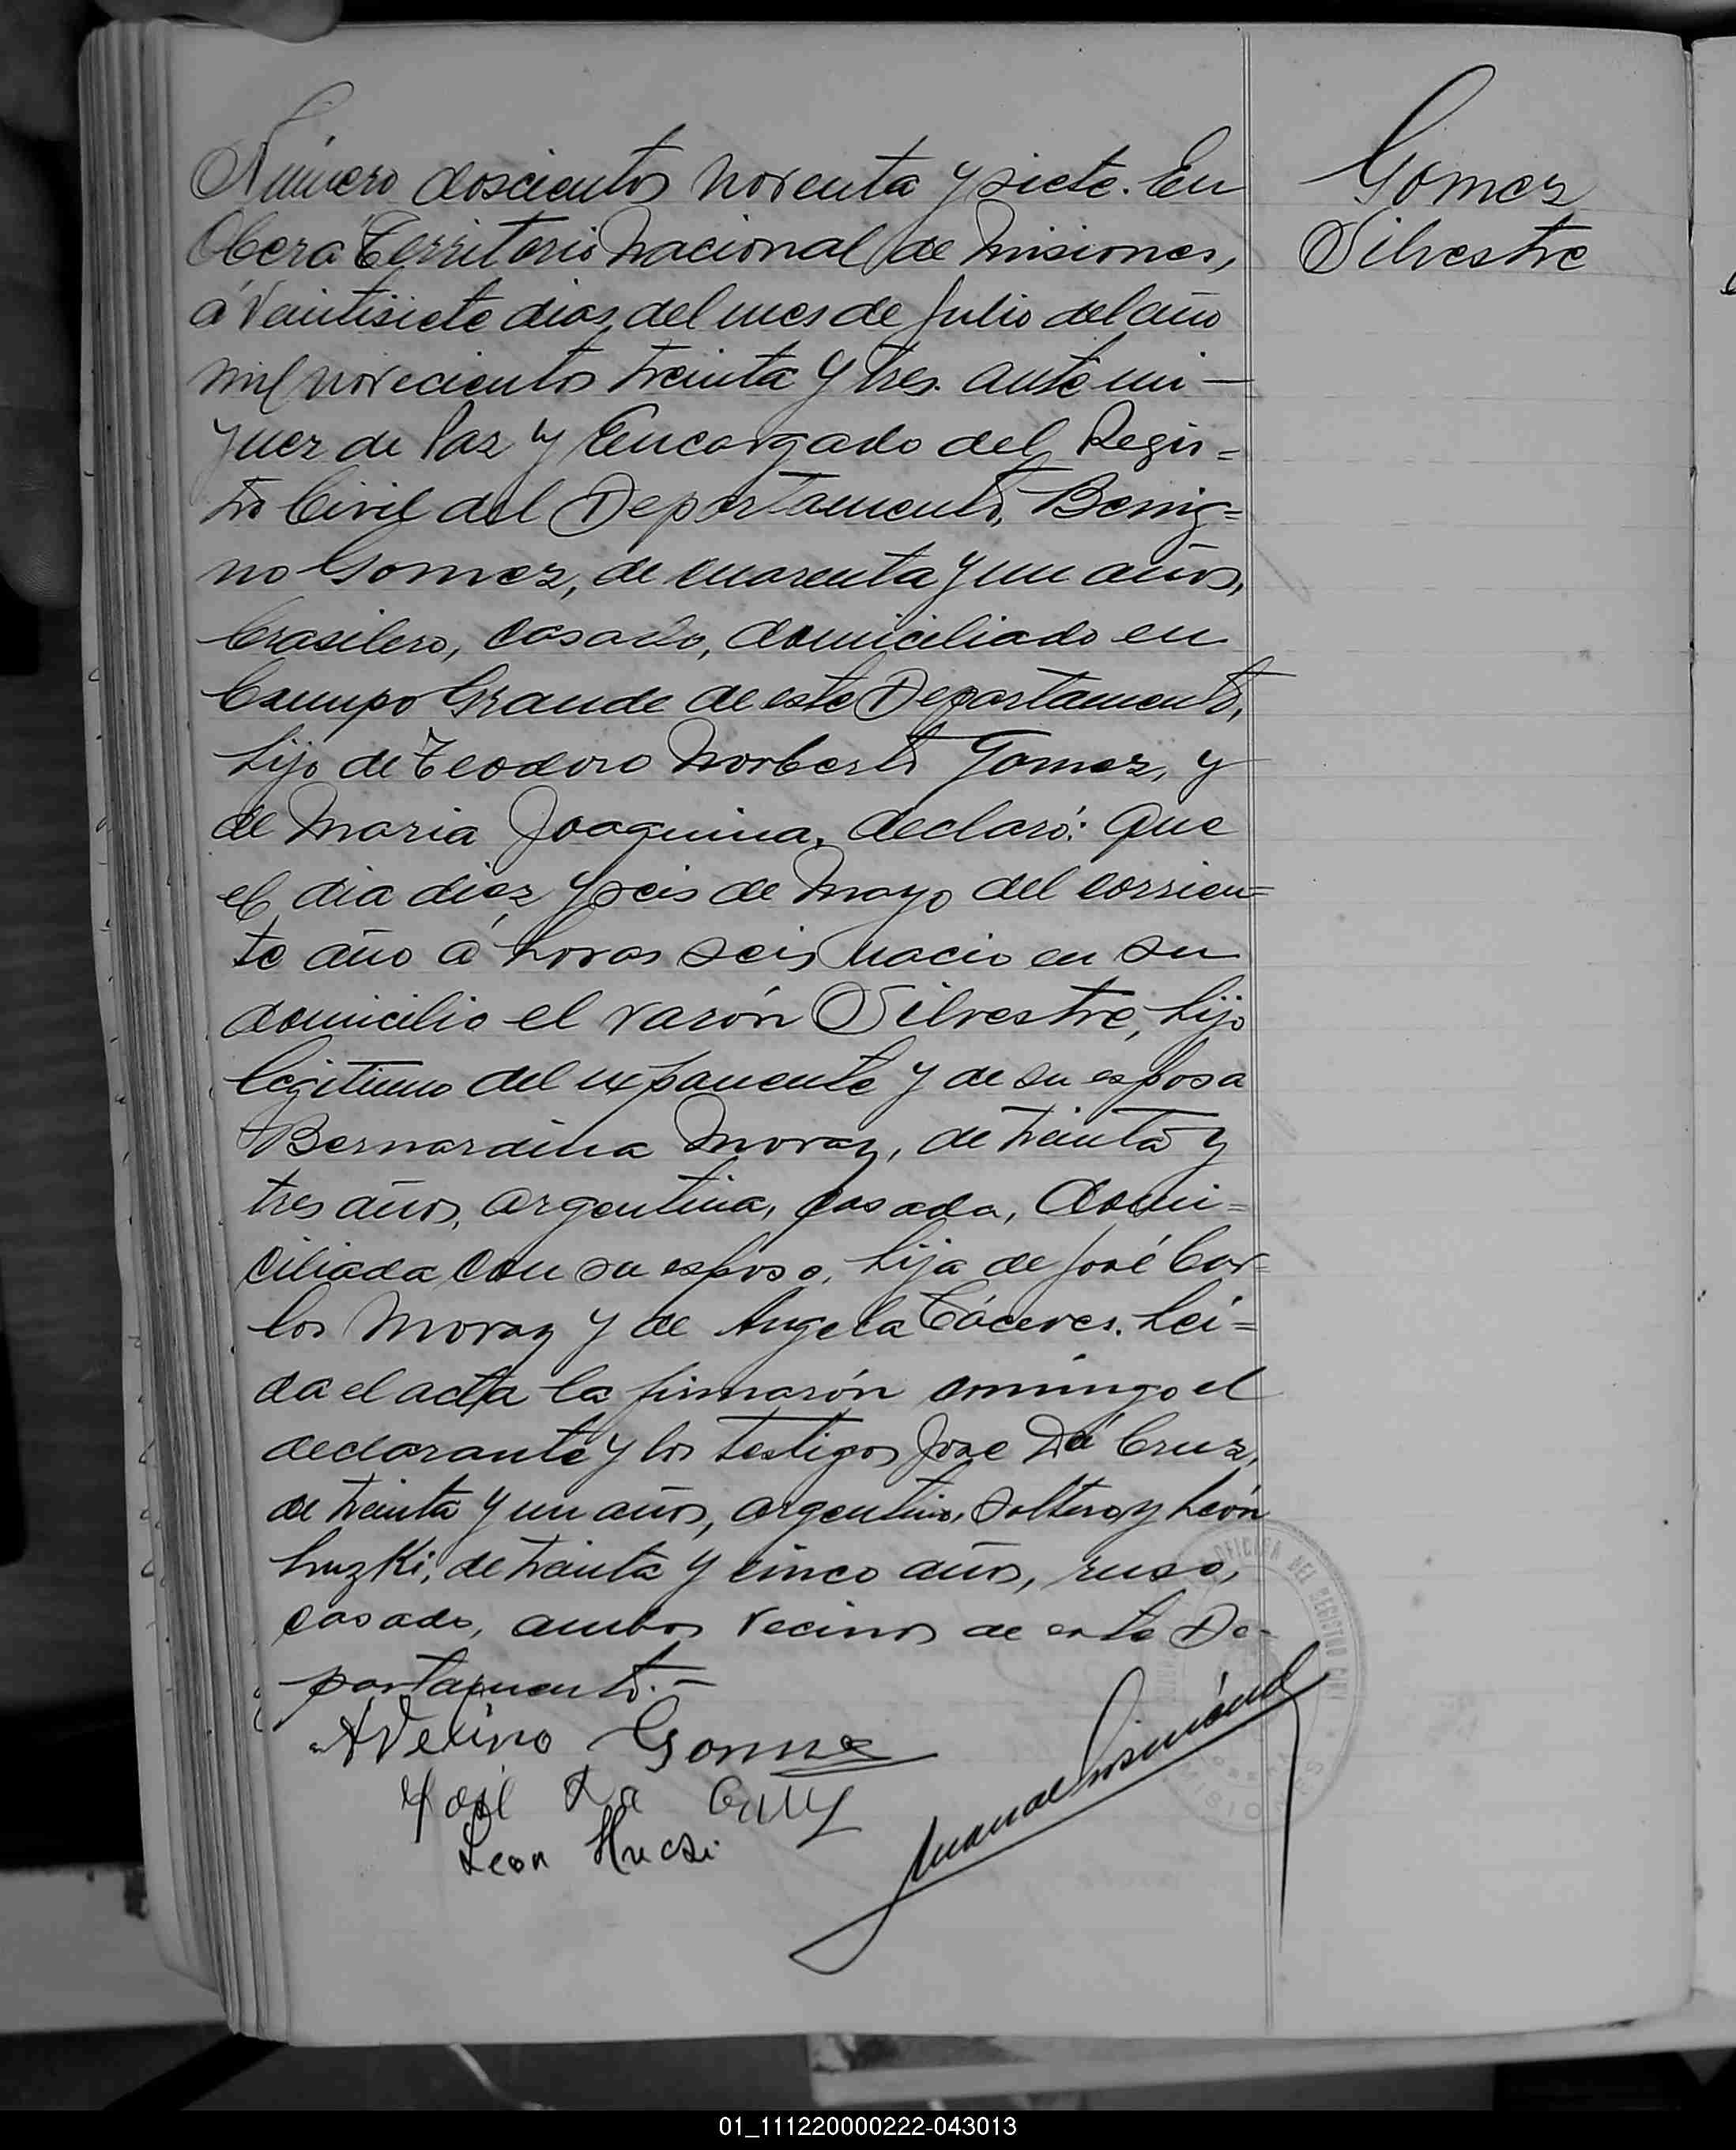 Número doscientos noventa y siete. En
Oberá Territorio Nacional de Misiones,
á veintisiete dias, del mes de Julio del año
mil novecientos treinta y tres. ante mi —
Juez de Paz y Encargado del Regis=
tro Civil del Departamento, Benig=
no Gomez, de cuarenta y un años,
brasilero, casado, domiciliado en
Campo Grande de este Departamento,
hijo de Teodoro Norberto Gomez, y
de Maria Joaquina, declaró: Que
el dia diez y seis de Mayo del corrien=
te año á horas seis nacio en su
domicilio el varón Silvestre, hijo
legitimo del exponente y de su esposa
Bernardina Moraz, de treinta y
tres años, argentina, casada, domi=
ciliada con su esposo, hija de José Car=
los Moraz y de Angela Cáceres. Lei=
da el acta la firmarón conmingo el
declarante y los testigos Jose Da Cruz,
de treinta y un años, argentino, soltero y León
Luzki, de treinta y cinco años, ruso,
casado, ambos vecinos de este De=
partamento. —
Avelino Gomez
José Da Cruz
Leon
Gomez
Silvestre
OFICINA DEL REGISTRO CIVIL
MISIONES
01_111220000222-043013